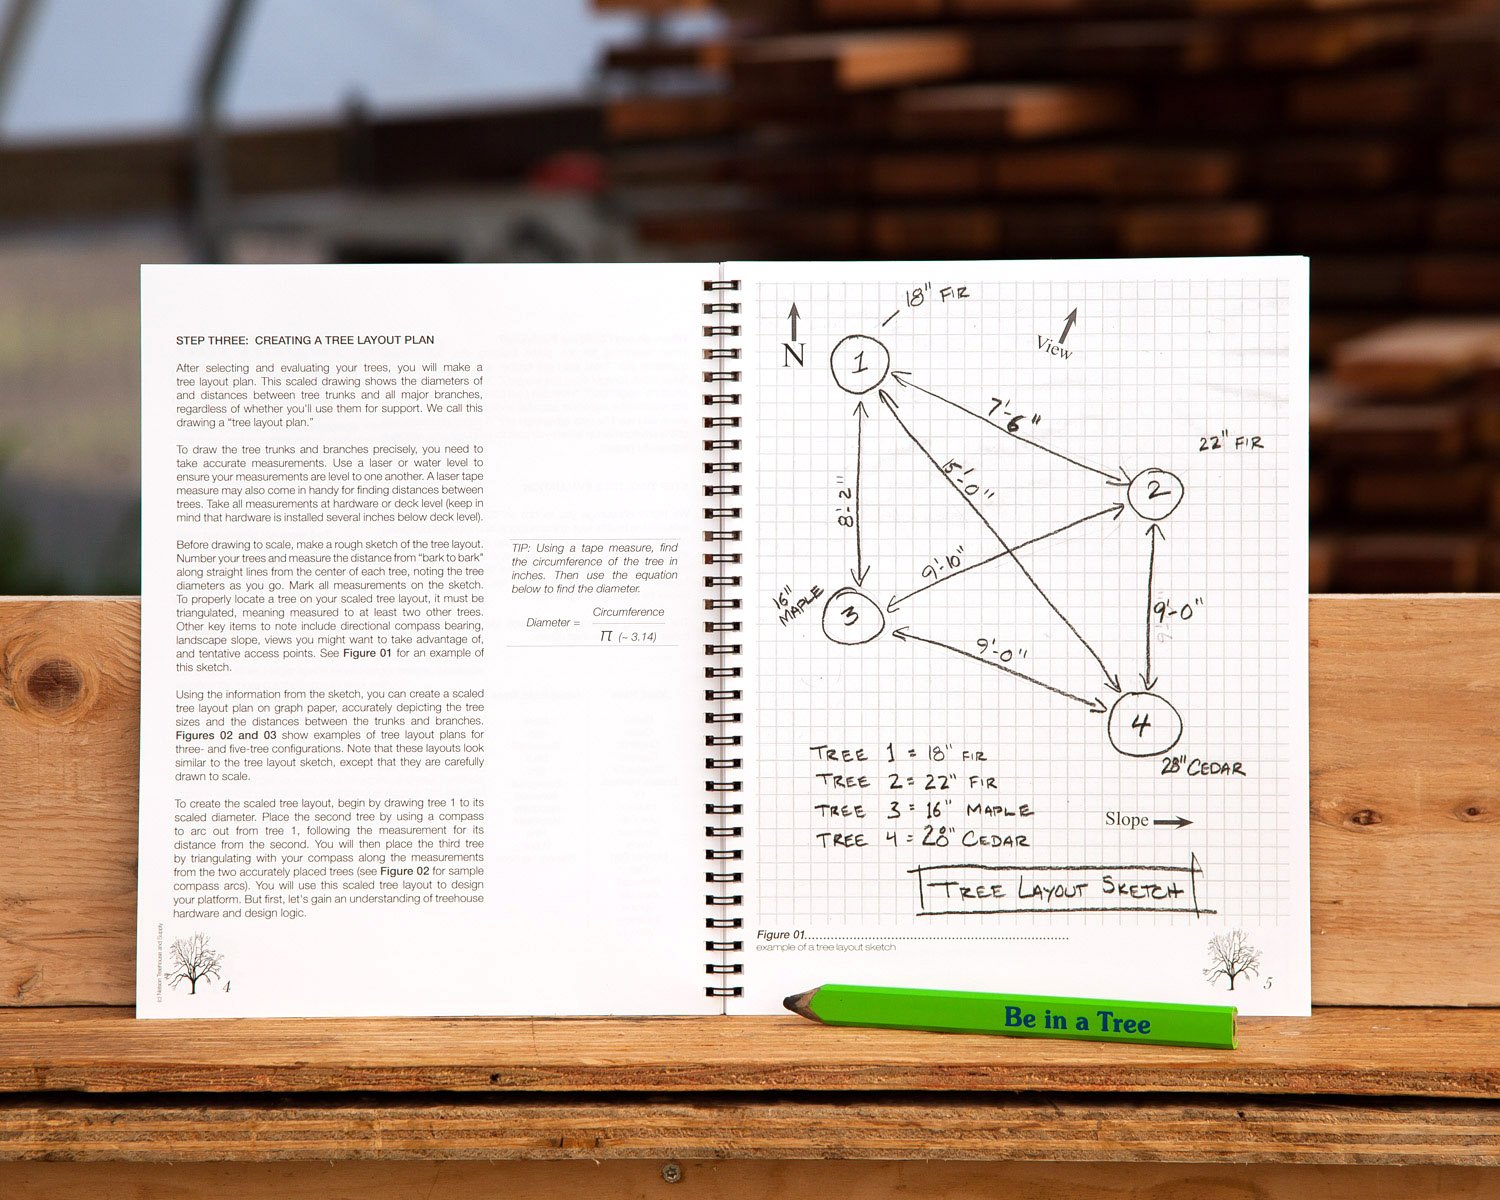 STEP THREE: CREATING A TREE LAYOUT PLAN
After selecting and evaluating your trees, you will make a
tree layout plan. This scaled drawing shows the diameters of
and distances between tree trunks and all major branches,
regardless of whether you'll use them for support. We call this
drawing a “tree layout plan.”
To draw the tree trunks and branches precisely, you need to
take accurate measurements. Use a laser or water level to
ensure your measurements are level to one another. A laser tape
measure may also come in handy for finding distances between
trees. Take all measurements at hardware or deck level (keep in
mind that hardware is installed several inches below deck level).
Before drawing to scale, make a rough sketch of the tree layout.
Number your trees and measure the distance from “bark to bark”
along straight lines from the center of each tree, noting the tree
diameters as you go. Mark all measurements on the sketch.
To properly locate a tree on your scaled tree layout, it must be
triangulated, meaning measured to at least two other trees.
Other key items to note include directional compass bearing,
landscape slope, views you might want to take advantage of,
and tentative access points. See Figure 01 for an example of
this sketch.
Using the information from the sketch, you can create a scaled
tree layout plan on graph paper, accurately depicting the tree
sizes and the distances between the trunks and branches.
Figures 02 and 03 show examples of tree layout plans for
three- and five-tree configurations. Note that these layouts look
similar to the tree layout sketch, except that they are carefully
drawn to scale.
To create the scaled tree layout, begin by drawing tree 1 to its
scaled diameter. Place the second tree by using a compass
to arc out from tree 1, following the measurement for its
distance from the second. You will then place the third tree
by triangulating with your compass along the measurements
from the two accurately placed trees (see Figure 02 for sample
compass arcs). You will use this scaled tree layout to design
your platform. But first, let's gain an understanding of treehouse
hardware and design logic.
TIP: Using a tape measure, find
the circumference of the tree in
inches. Then use the equation
below to find the diameter.
Diameter = Circumference
π (~ 3.14)
(c) Nelson Treehouse and Supply
4
18" FIR
N
View
1
7'-6"
22" FIR
2
15'-0"
8'-2"
9'-10"
16"
MAPLE
3
9'-0"
9'-0"
4
28" CEDAR
TREE 1 = 18" FIR
TREE 2 = 22" FIR
TREE 3 = 16" MAPLE
TREE 4 = 28" CEDAR
Slope
TREE LAYOUT SKETCH
Figure 01
example of a tree layout sketch
5
Be in a Tree